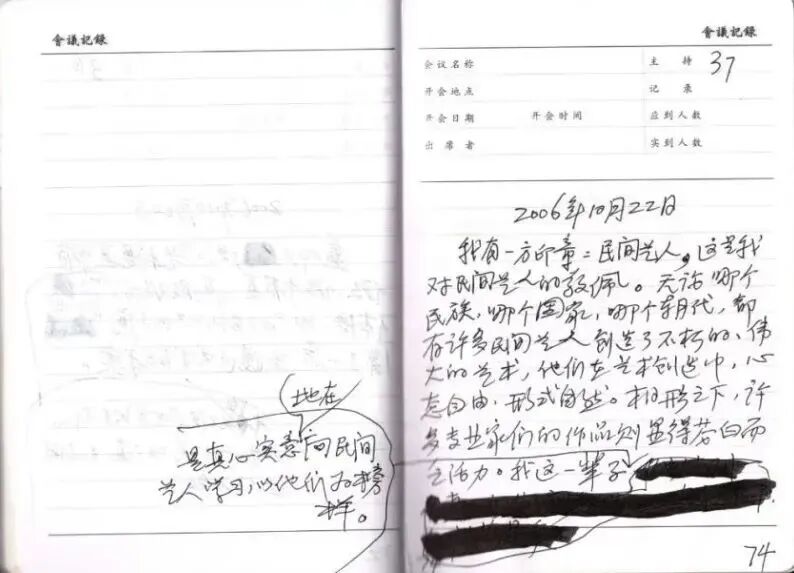 會議記録
地在
是真心实意向民间
艺人学习，以他们为榜
样。
會議記録
会议名称 主持 37
开会地点 记录
开会日期 开会时间 应到人数
出席者 实到人数
2006年10月22日
我有一方印章：民间艺人。这是我
对民间艺人的敬佩。无论哪个
民族，哪个国家，哪个朝代，都
有许多民间艺人创造了不朽的、伟
大的艺术，他们在艺术创造中，心
态自由，形式自然。相形之下，许
多专业家们的作品则显得苍白而
无活力。我这一辈子
74